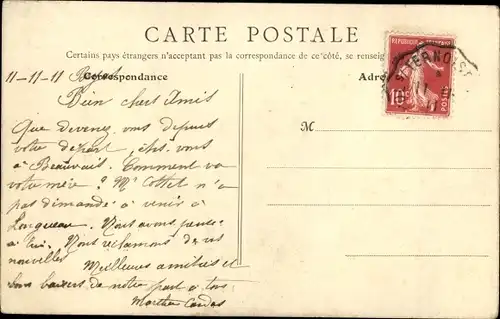 CARTE POSTALE
Certains pays étrangers n'acceptant pas la correspondance de ce côté, se renseig
Correspondance
Adre
RÉPUBLIQUE FRANÇAISE
10
POSTES
M
11-11-11
Bien chers Amis
Que devenez vous depuis
votre départ, êtes vous
à Beauvais. Comment va
votre mère? Mr Cottet n'a
pas demandé à venir à
Longueau. Nous avons pensé
à lui. Nous réclamons de vos
nouvelles
Meilleures amitiés et
bons baisers de notre part à tous
Marthe